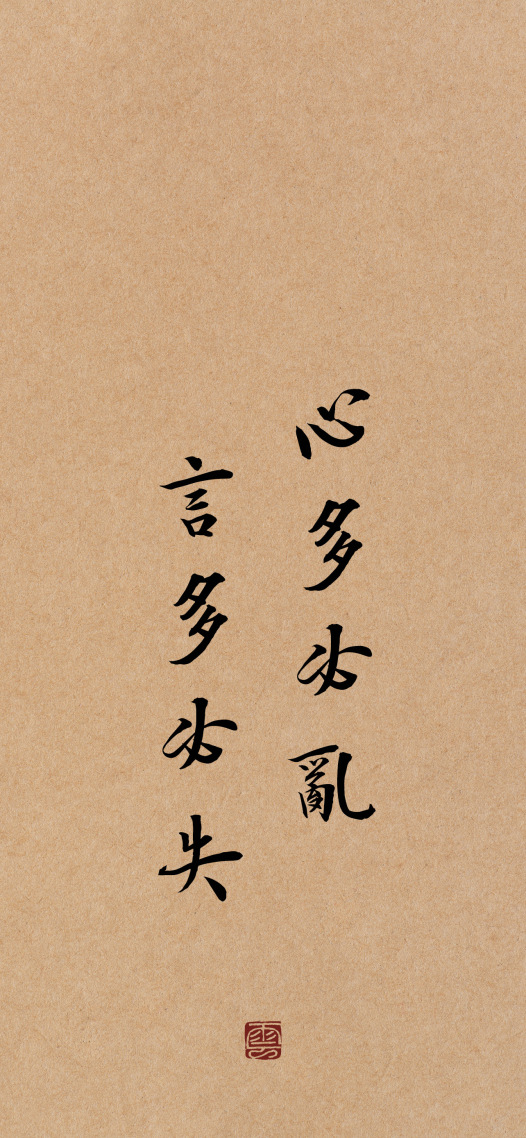 心多必亂
言多必失
雲